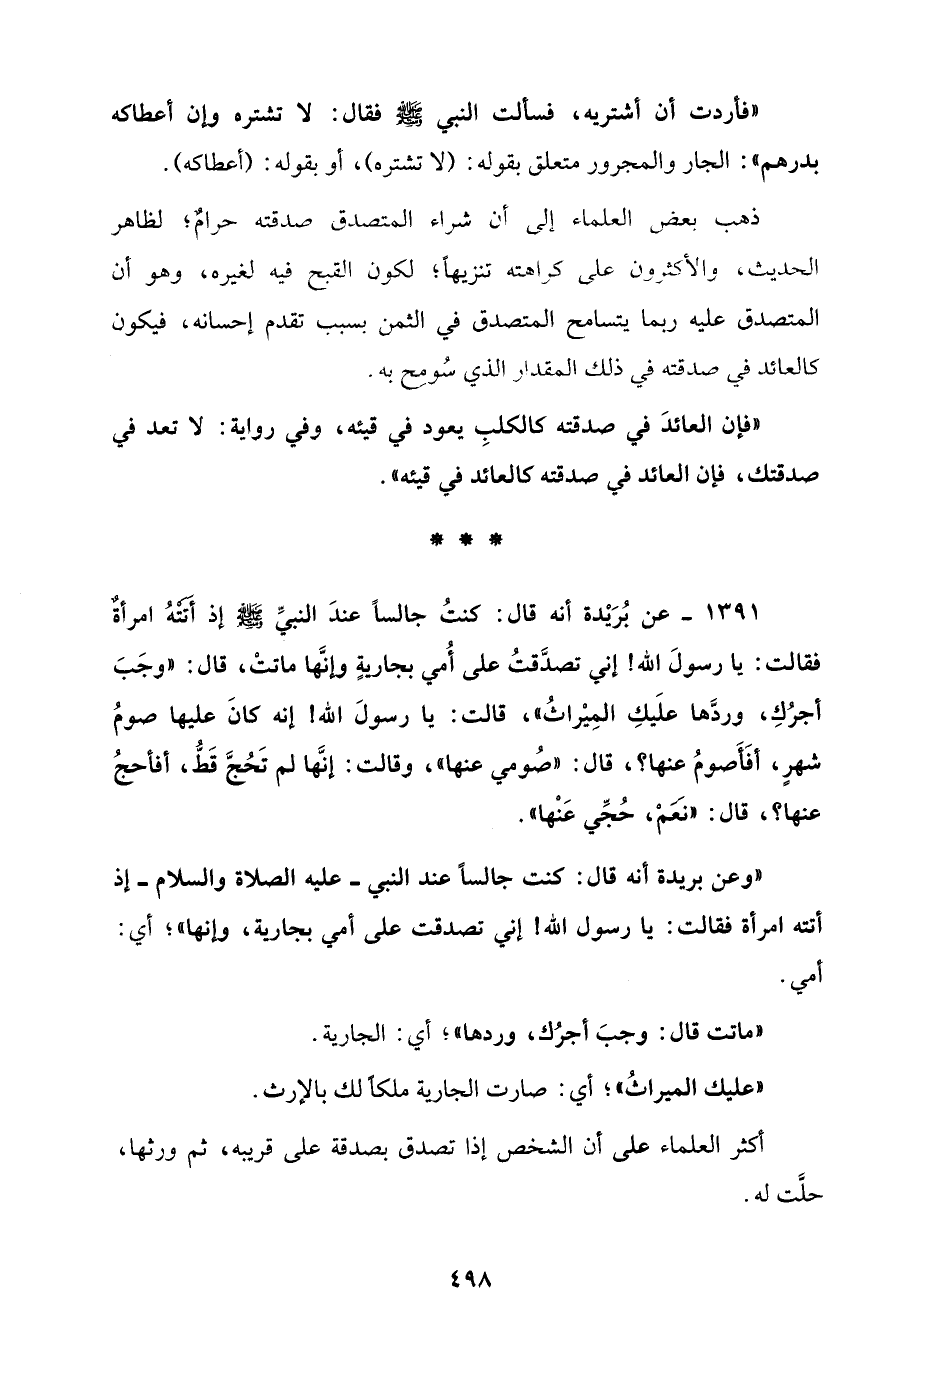 «فأردت أن أشتريه، فسألت النبي ﷺ فقال: لا تشتره وإن أعطاكه
بدرهم»: الجار والمجرور متعلق بقوله: (لا تشتره)، أو بقوله: (أعطاكه).
ذهب بعض العلماء إلى أن شراء المتصدق صدقته حرامٌ؛ لظاهر
الحديث، والأكثرون على كراهته تنزيهاً؛ لكون القبح فيه لغيره، وهو أن
المتصدق عليه ربما يتسامح المتصدق في الثمن بسبب تقدم إحسانه، فيكون
كالعائد في صدقته في ذلك المقدار الذي سُومِح به.
«فإن العائدَ في صدقته كالكلبِ يعود في قيئه، وفي رواية: لا تعد في
صدقتك، فإن العائد في صدقته كالعائد في قيئه».
* * *
١٣٩١ - عن بُرَيْدة أنه قال: كنتُ جالساً عندَ النبيِّ ﷺ إذ أَتَتْهُ امرأةٌ
فقالت: يا رسولَ الله! إني تصدَّقتُ على أُمي بجاريةٍ وإنَّها ماتتْ، قال: «وجَبَ
أجرُكِ، وردَّها علَيكِ المِيْراثُ»، قالت: يا رسولَ الله! إنه كانَ عليها صومُ
شهرٍ، أفَأَصومُ عنها؟، قال: «صُومي عنها»، وقالت: إنَّها لم تَحُجَّ قَطُّ، أفأحجُ
عنها؟، قال: «نَعَمْ، حُجِّي عَنْها».
«وعن بريدة أنه قال: كنت جالساً عند النبي - عليه الصلاة والسلام - إذ
أتته امرأة فقالت: يا رسول الله! إني تصدقت على أمي بجارية، وإنها»؛ أي:
أمي.
«ماتت قال: وجبَ أجرُك، وردها»؛ أي: الجارية.
«عليك الميراثُ»؛ أي: صارت الجارية ملكاً لك بالإرث.
أكثر العلماء على أن الشخص إذا تصدق بصدقة على قريبه، ثم ورثها،
حلَّت له.
٤٩٨